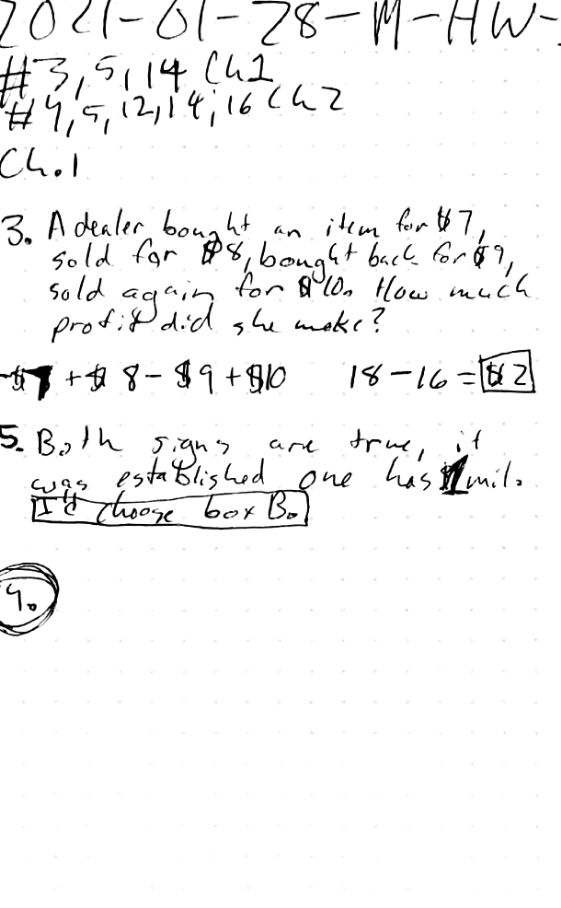 2021-01-28-M-HW-
#3,5,14 Ch1
#4,5,12,14,16 Ch2
Ch.1
3. A dealer bought an item for $7,
sold for $8, bought back for $9,
sold again for $10. How much
profit did she make?
-$7 + $8 - $9 + $10 18-16 = $2
5. Both signs are true, it
was established one has 1 mil.
I'd choose box B.
4.